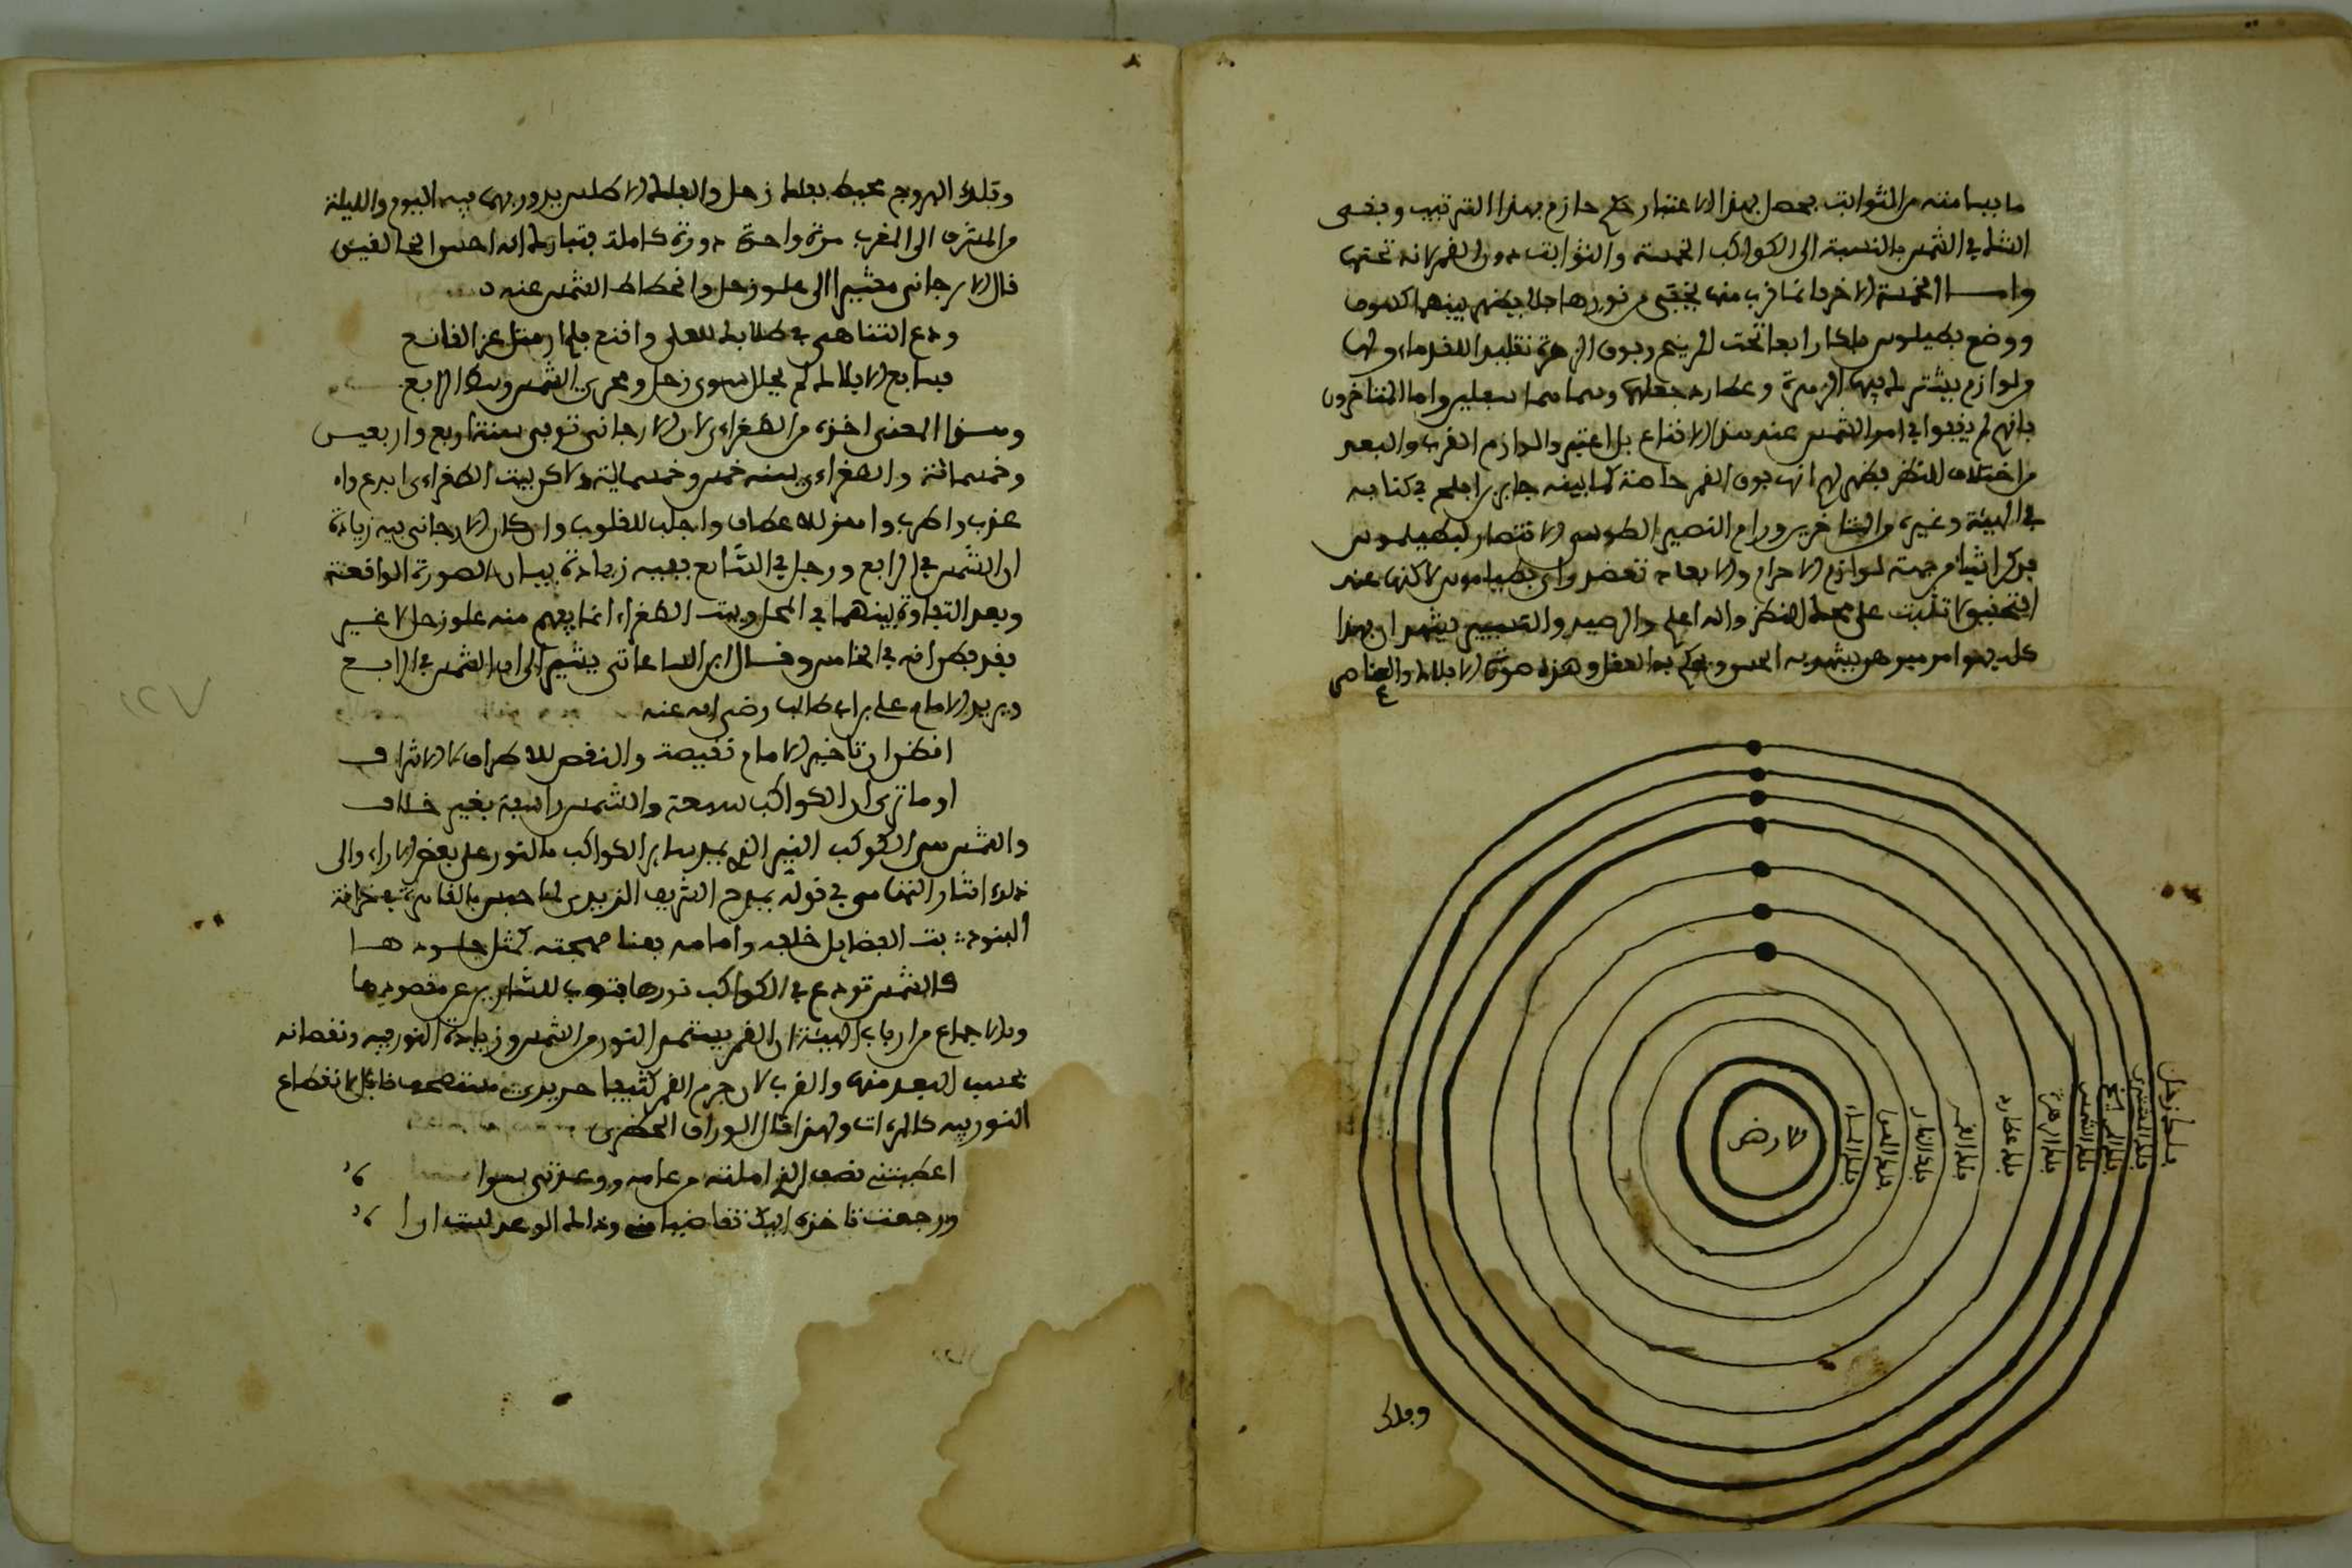 ما يسامته من الثوابت يحصل بهذا الاعتبار حكم جازم بهذا الترتيب وبقى
الشك في الشمس بالنسبة الى الكواكب الخمسة والثوابت دون القمر لانه تحتها
واما الخمسة الاخر بما قرب منها يختفى من نورها فلا يظهر بينهما كسوف
ووضع بطيلوس فلكا رابعا تحت المريخ وفوق الزهرة تقليدا للقدماء ولها
ولوازم يشترك فيها الزهرة وعطارد وجعلهما واما المتاخرون
بانهم لم يقفوا في امر الشمس عند هذا الاقناع بل اعتبروا لوازم القرب والبعد
من اختلاف المنظر فظهر لهم انها فوق القمر خاصة كما بينه جابر بن افلح في كتابه
في الهيئة وغيره والمتاخرين ورام النصير الطوسي الانتصار لبطيلموس
فذكر اشياء من جهة لوازم الاجرام والابعاد تعضد راى بطيلموس لاكنها عند
التحقيق لا تثبت على محك النظر والله اعلم والرصد والتسيير يشهد ان بهذا
كله فهو امر ميرهن يشهد به الحس ويحكم به العقل وهذه صورة الافلاك والعناصر
فلك زحل
فلك المشترى
فلك المريخ
فلك الشمس
فلك الزهرة
فلك عطارد
فلك القمر
فلك النار
فلك الهوا
فلك الماء
الارض
وفلك
وفلك البروج محيط بفلك زحل والفلك الاطلس يدور بهما فيه اليوم والليلة
من المشرق الى المغرب مرة واحدة دورة كاملة فتبارك الله احسن الخالقين
قال الارجاني مشيرا الى علو زحل وانحطاط الشمس عنه
ودع التناهى في طلابك للعلى واقنع فلم ار مثل عز القانع
فبسابع الافلاك لم يحلل سوى زحل ومجرى الشمس وسط الرابع
وهذا المعنى اخذه من الطغراءى لان الارجاني توفى سنة اربع واربعين
وخمسمائة والطغراءى سنة خمس وخمسماية ولاكن بيت الطغراءى ابدع واه
عذب واطرب واهز للاعطاف واجلب للقلوب وان كان الارجاني فيه زيادة
ان الشمس في الرابع وزحل في السابع ففيه زيادة بيان الصورة الواقعة
وبعد التفاوت بينهما في المحل وبيت الطغراءى انما يفهم منه علو زحل لا غير
فقد يظن انه في الخامس وقال ابن الساعاتي يشير الى ان الشمس في الرابع
ويريد الامام على بن ابي طالب رضى الله عنه
اتظن ان تاخير الامام نقيصة والنقص للاطراف لا الاشراف
او ما ترى ان الكواكب سبعة والشمس رابعة بغير خلاف
والشمس هى الكوكب النير الذى يمد ساير الكواكب بالنور على بعض الاراء والى
ذلك اشار التهامى في قوله يمدح الشريف الزيدى لما حبس بالقاهرة بخزانة
البنود: بث الفضايل خلفه وامامه بعنا صحبته كمثل جلسوده
كالشمس تودع في الكواكب نورها فتنوب للسارين عن مقصودها
وبالاجماع من ارباب الهيئة ان القمر يستمد النور من الشمس وزيادة النور فيه ونقصانه
بحسب البعد منها والقرب لان جرم القمر كثيفا حديدى مستصحف قابل لانطباع
النور فيه كالمراة ولهذا قال الوراق الحظيرى
اعطيتنى نصف الذى املته من عامه ووعدتني بسوا
ورجعت تاخذه اليك تقاضيا منه وذلك الوعد ليت ارا